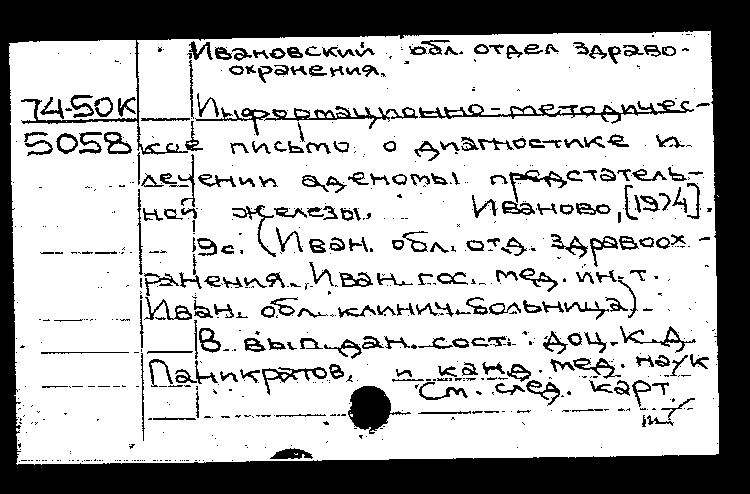 Ивановский обл. отдел здраво-
охранения.
74-50К Информационно-методичес-
5058 кое письмо о диагностике и
лечении аденомы предстатель-
ной железы. Иваново, [1974].
9с. (Иван. обл. отд. здравоох-
ранения. Иван. гос. мед. ин-т.
Иван. обл. клинич. больница)
В вып. дан. сост.: доц. К.Д.
Паникратов, и канд. мед. наук
См. след. карт.